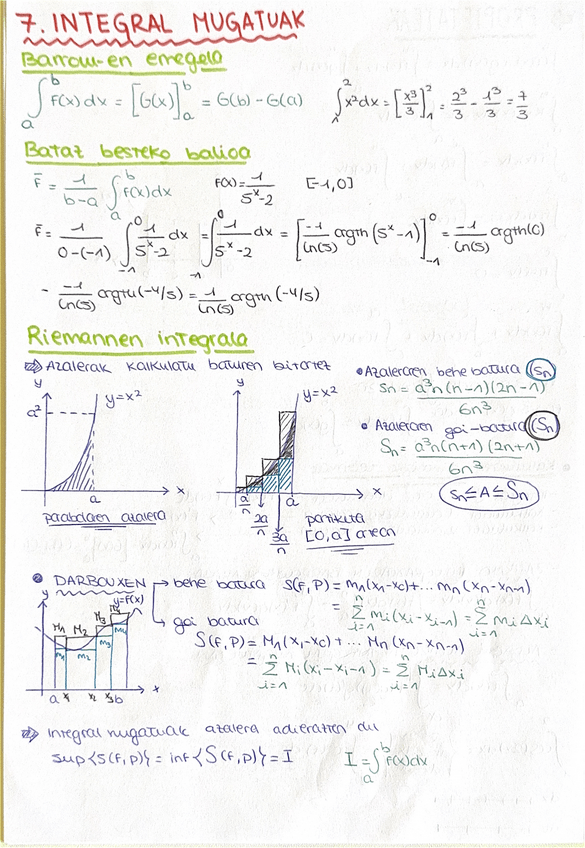 7. INTEGRAL MUGATUAK
Barrow-en erregela
∫_a^b F(x) dx = [G(x)]_a^b = G(b) - G(a)    ∫_1^2 x² dx = [x³/3]_1^2 = 2³/3 - 1³/3 = 7/3
Bataz besteko balioa
F̄ = 1/(b-a) ∫_a^b F(x) dx    F(x) = 1/(5^x-2)    [-1,0]
F̄ = 1/(0-(-1)) ∫_-1^0 1/(5^x-2) dx = ∫_-1^0 1/(5^x-2) dx = [-1/ln(5) argth (5^x-1)]_-1^0 = -1/ln(5) argth(0)
- -1/ln(5) argth(-4/5) = 1/ln(5) argth (-4/5)
Riemannen integrala
⇒ Azalerak kalkulatu baturen bitartez
y
a²
y=x²
a
x
parabolaren azalera
y
y=x²
a/n
2a/n
3a/n
a
x
partiketa
[0,a] arean
• Azaleraren behe batura (sn)
sn = a³n(n-1)(2n-1)/6n³
• Azaleraren goi-batura (Sn)
Sn = a³n(n+1)(2n+1)/6n³
sn ≤ A ≤ Sn
• DARBOUXEN → behe batura s(F,P) = m1(x1-x0)+... mn(xn-xn-1)
= Σ_{i=1}^n mi(xi-xi-1) = Σ_{i=1}^n mi Δxi
→ goi batura
S(F,P) = M1(x1-x0)+... Mn(xn-xn-1)
= Σ_{i=1}^n Mi(xi-xi-1) = Σ_{i=1}^n Mi Δxi
y
y=F(x)
M1
M2
M3
m1
m2
m3
m4
a
x1
x2
x3
b
x
⇒ integral mugatuak azalera adierazten du
sup{s(F,P)} = inf{S(F,P)} = I    I = ∫_a^b F(x) dx